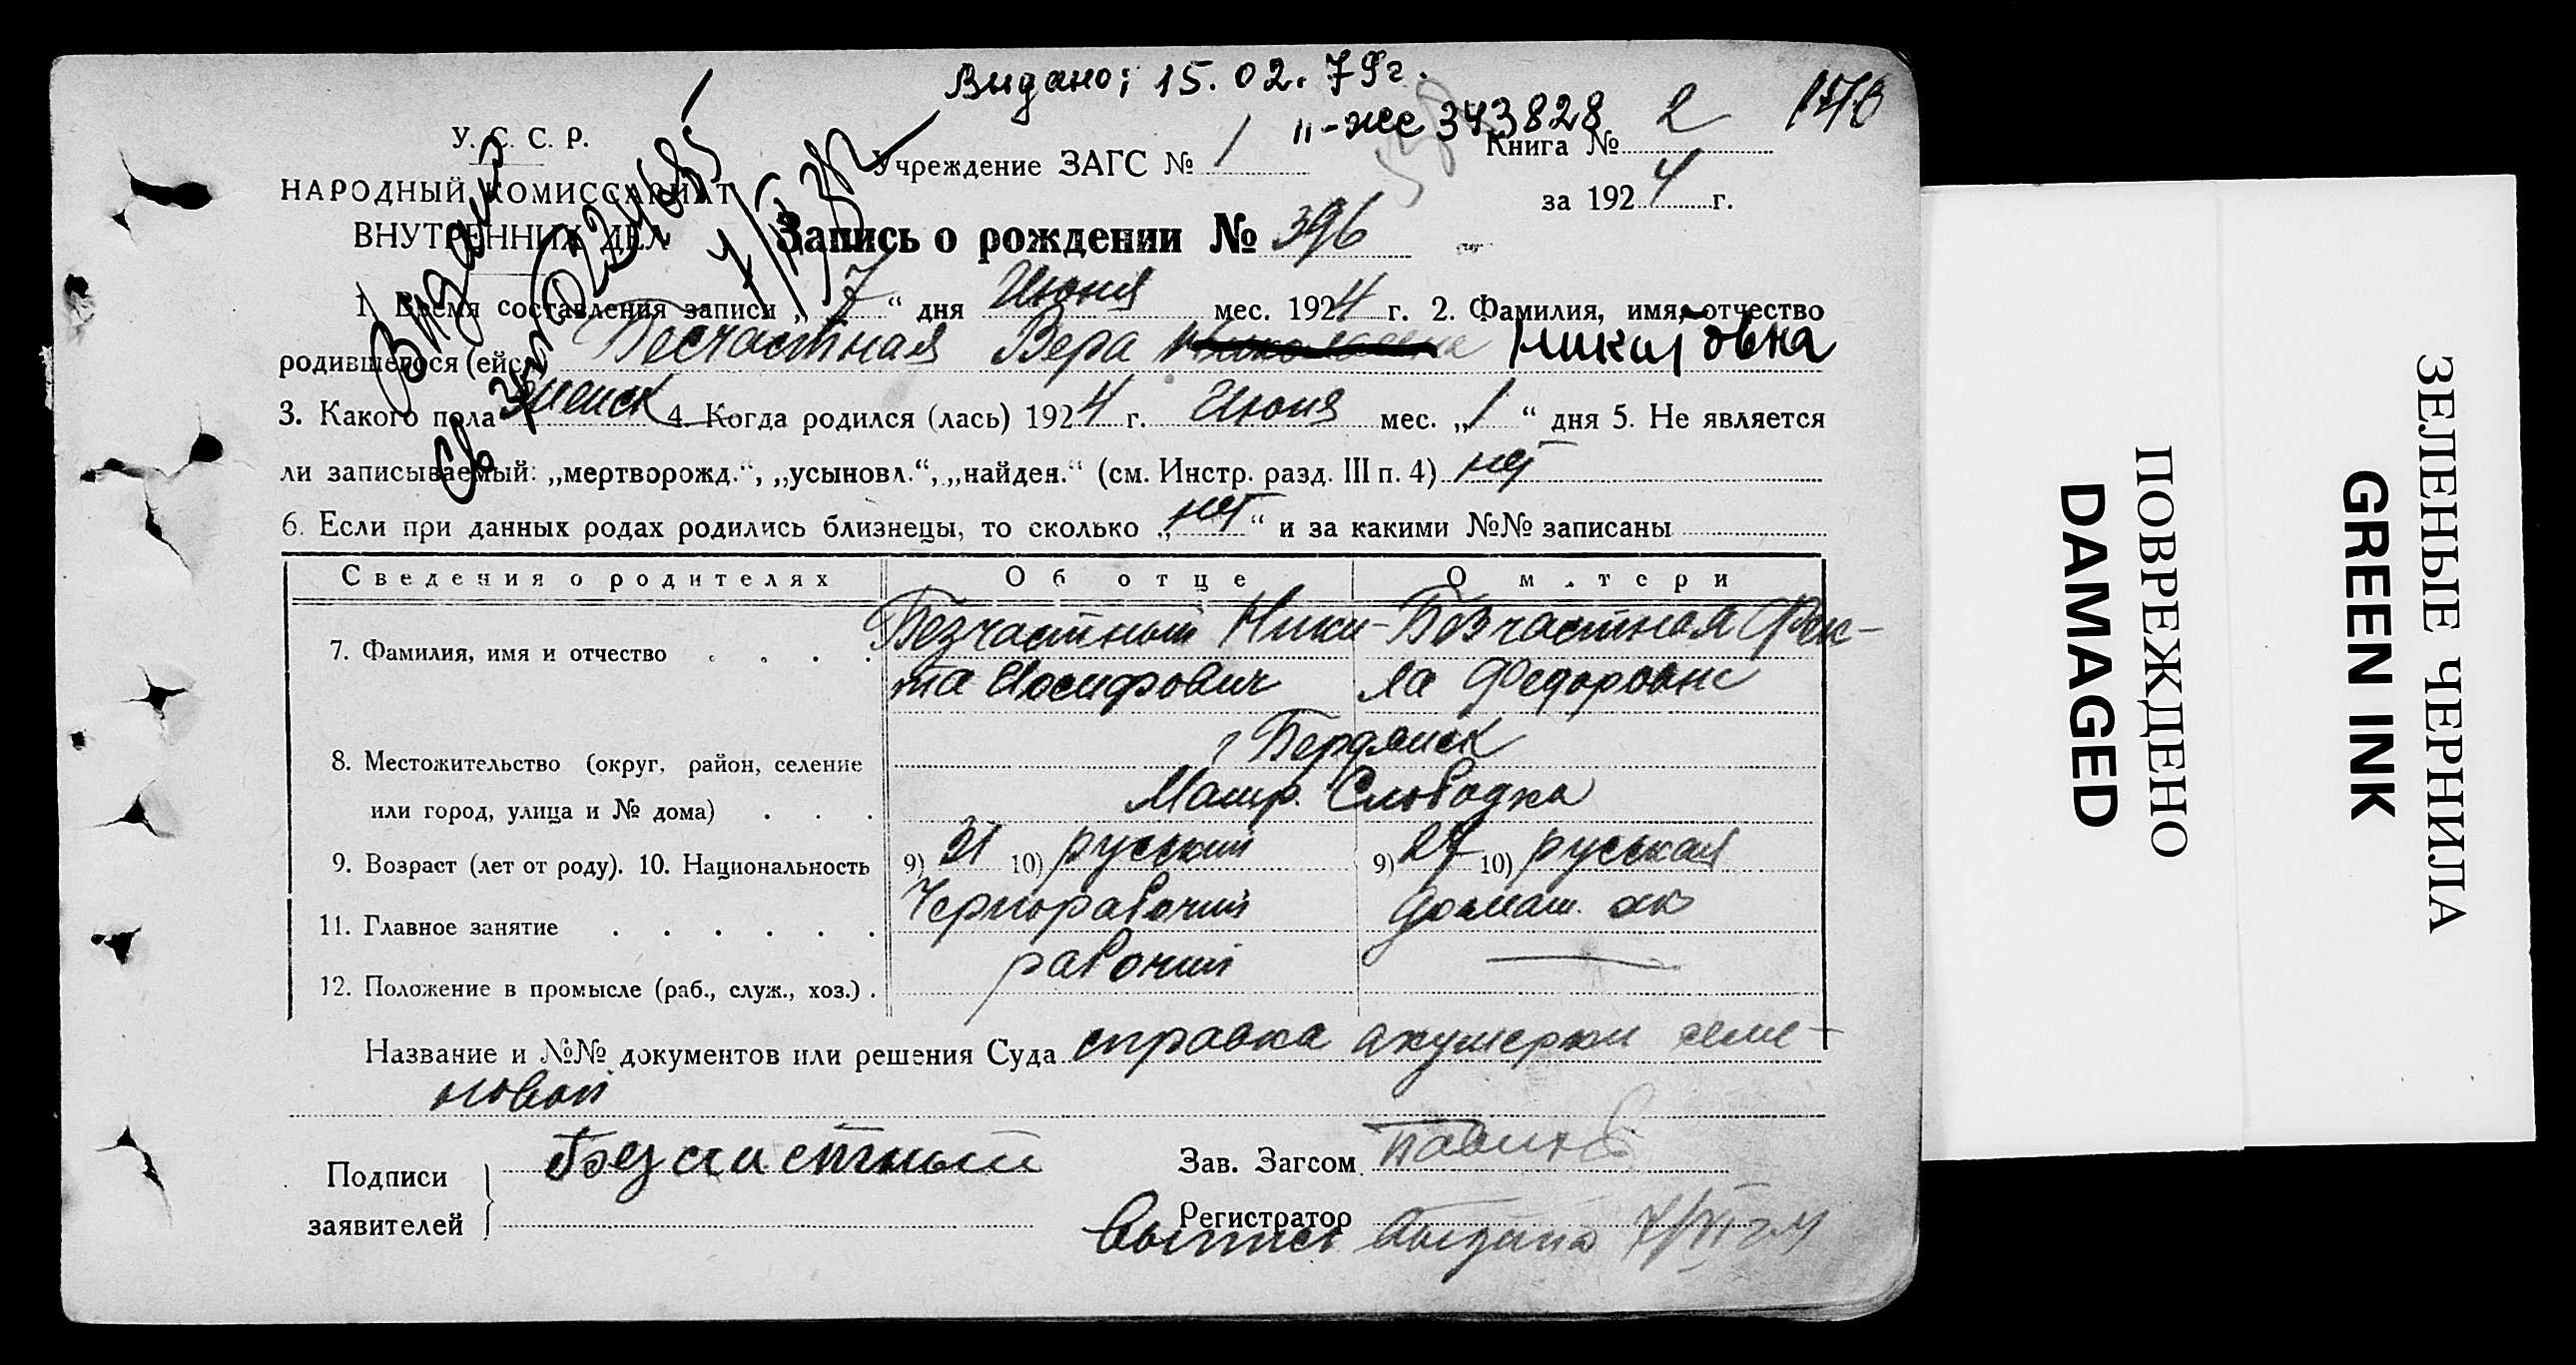 Видано: 15.02.79г.
"-же 343828
1578
У. С. С. Р.
НАРОДНЫЙ КОМИССАРИАТ
ВНУТРЕННИХ ДЕЛ
Учреждение ЗАГС № 1
Книга № 2
за 1924 г.
Запись о рождении № 396
1. Время составления записи „7“ дня Июня мес. 1924 г. 2. Фамилия, имя, отчество
родившегося (ейся) Бесчастная Вера Никитовна
3. Какого пола женск 4. Когда родился (лась) 1924 г. Июня мес. „1“ дня 5. Не является
ли записываемый: „мертворожд.“, „усыновл.“, „найден.“ (см. Инстр. разд. III п. 4) нет
6. Если при данных родах родились близнецы, то сколько „нет“ и за какими №№ записаны
Сведения о родителях Об отце О м.тери
7. Фамилия, имя и отчество Безчастный Ники- Безчастная Фек-
та Иосифович ла Федоровна
г Бердянск
8. Местожительство (округ, район, селение
или город, улица и № дома) Матр. Слободка
9. Возраст (лет от роду). 10. Национальность 9) 31 10) русский 9) 27 10) русская
11. Главное занятие Чернорабочий домаш. хоз
12. Положение в промысле (раб., служ., хоз.) рабочий —
Название и №№ документов или решения Суда справка акушерки семе-
новой
Подписи заявителей Безчастный
Зав. Загсом
Регистратор
Выпись 7/VI 24
ЗЕЛЕНЫЕ ЧЕРНИЛА
GREEN INK
ПОВРЕЖДЕНО
DAMAGED